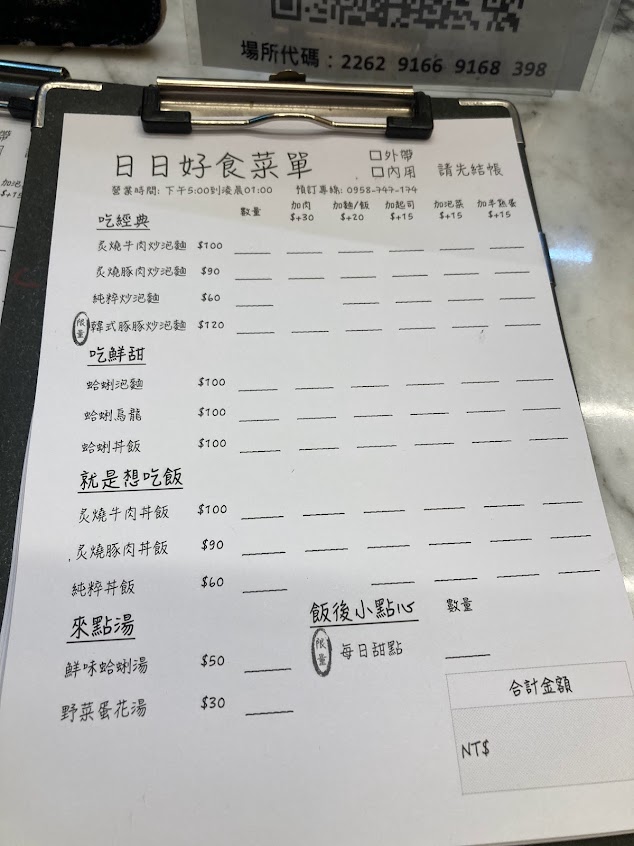 場所代碼：2262 9166 9168 398
日日好食菜單 □外帶 □內用 請先結帳
營業時間: 下午5:00到凌晨01:00 預訂專線: 0958-747-174
數量 加肉 $+30 加麵/飯 $+20 加起司 $+15 加泡菜 $+15 加半熟蛋 $+15
吃經典
炙燒牛肉炒泡麵 $100
炙燒豚肉炒泡麵 $90
純粹炒泡麵 $60
限量 韓式豚豚炒泡麵 $120
吃鮮甜
蛤蜊泡麵 $100
蛤蜊烏龍 $100
蛤蜊丼飯 $100
就是想吃飯
炙燒牛肉丼飯 $100
炙燒豚肉丼飯 $90
純粹丼飯 $60
來點湯
鮮味蛤蜊湯 $50
野菜蛋花湯 $30
飯後小點心 數量
限量 每日甜點
合計金額
NT$